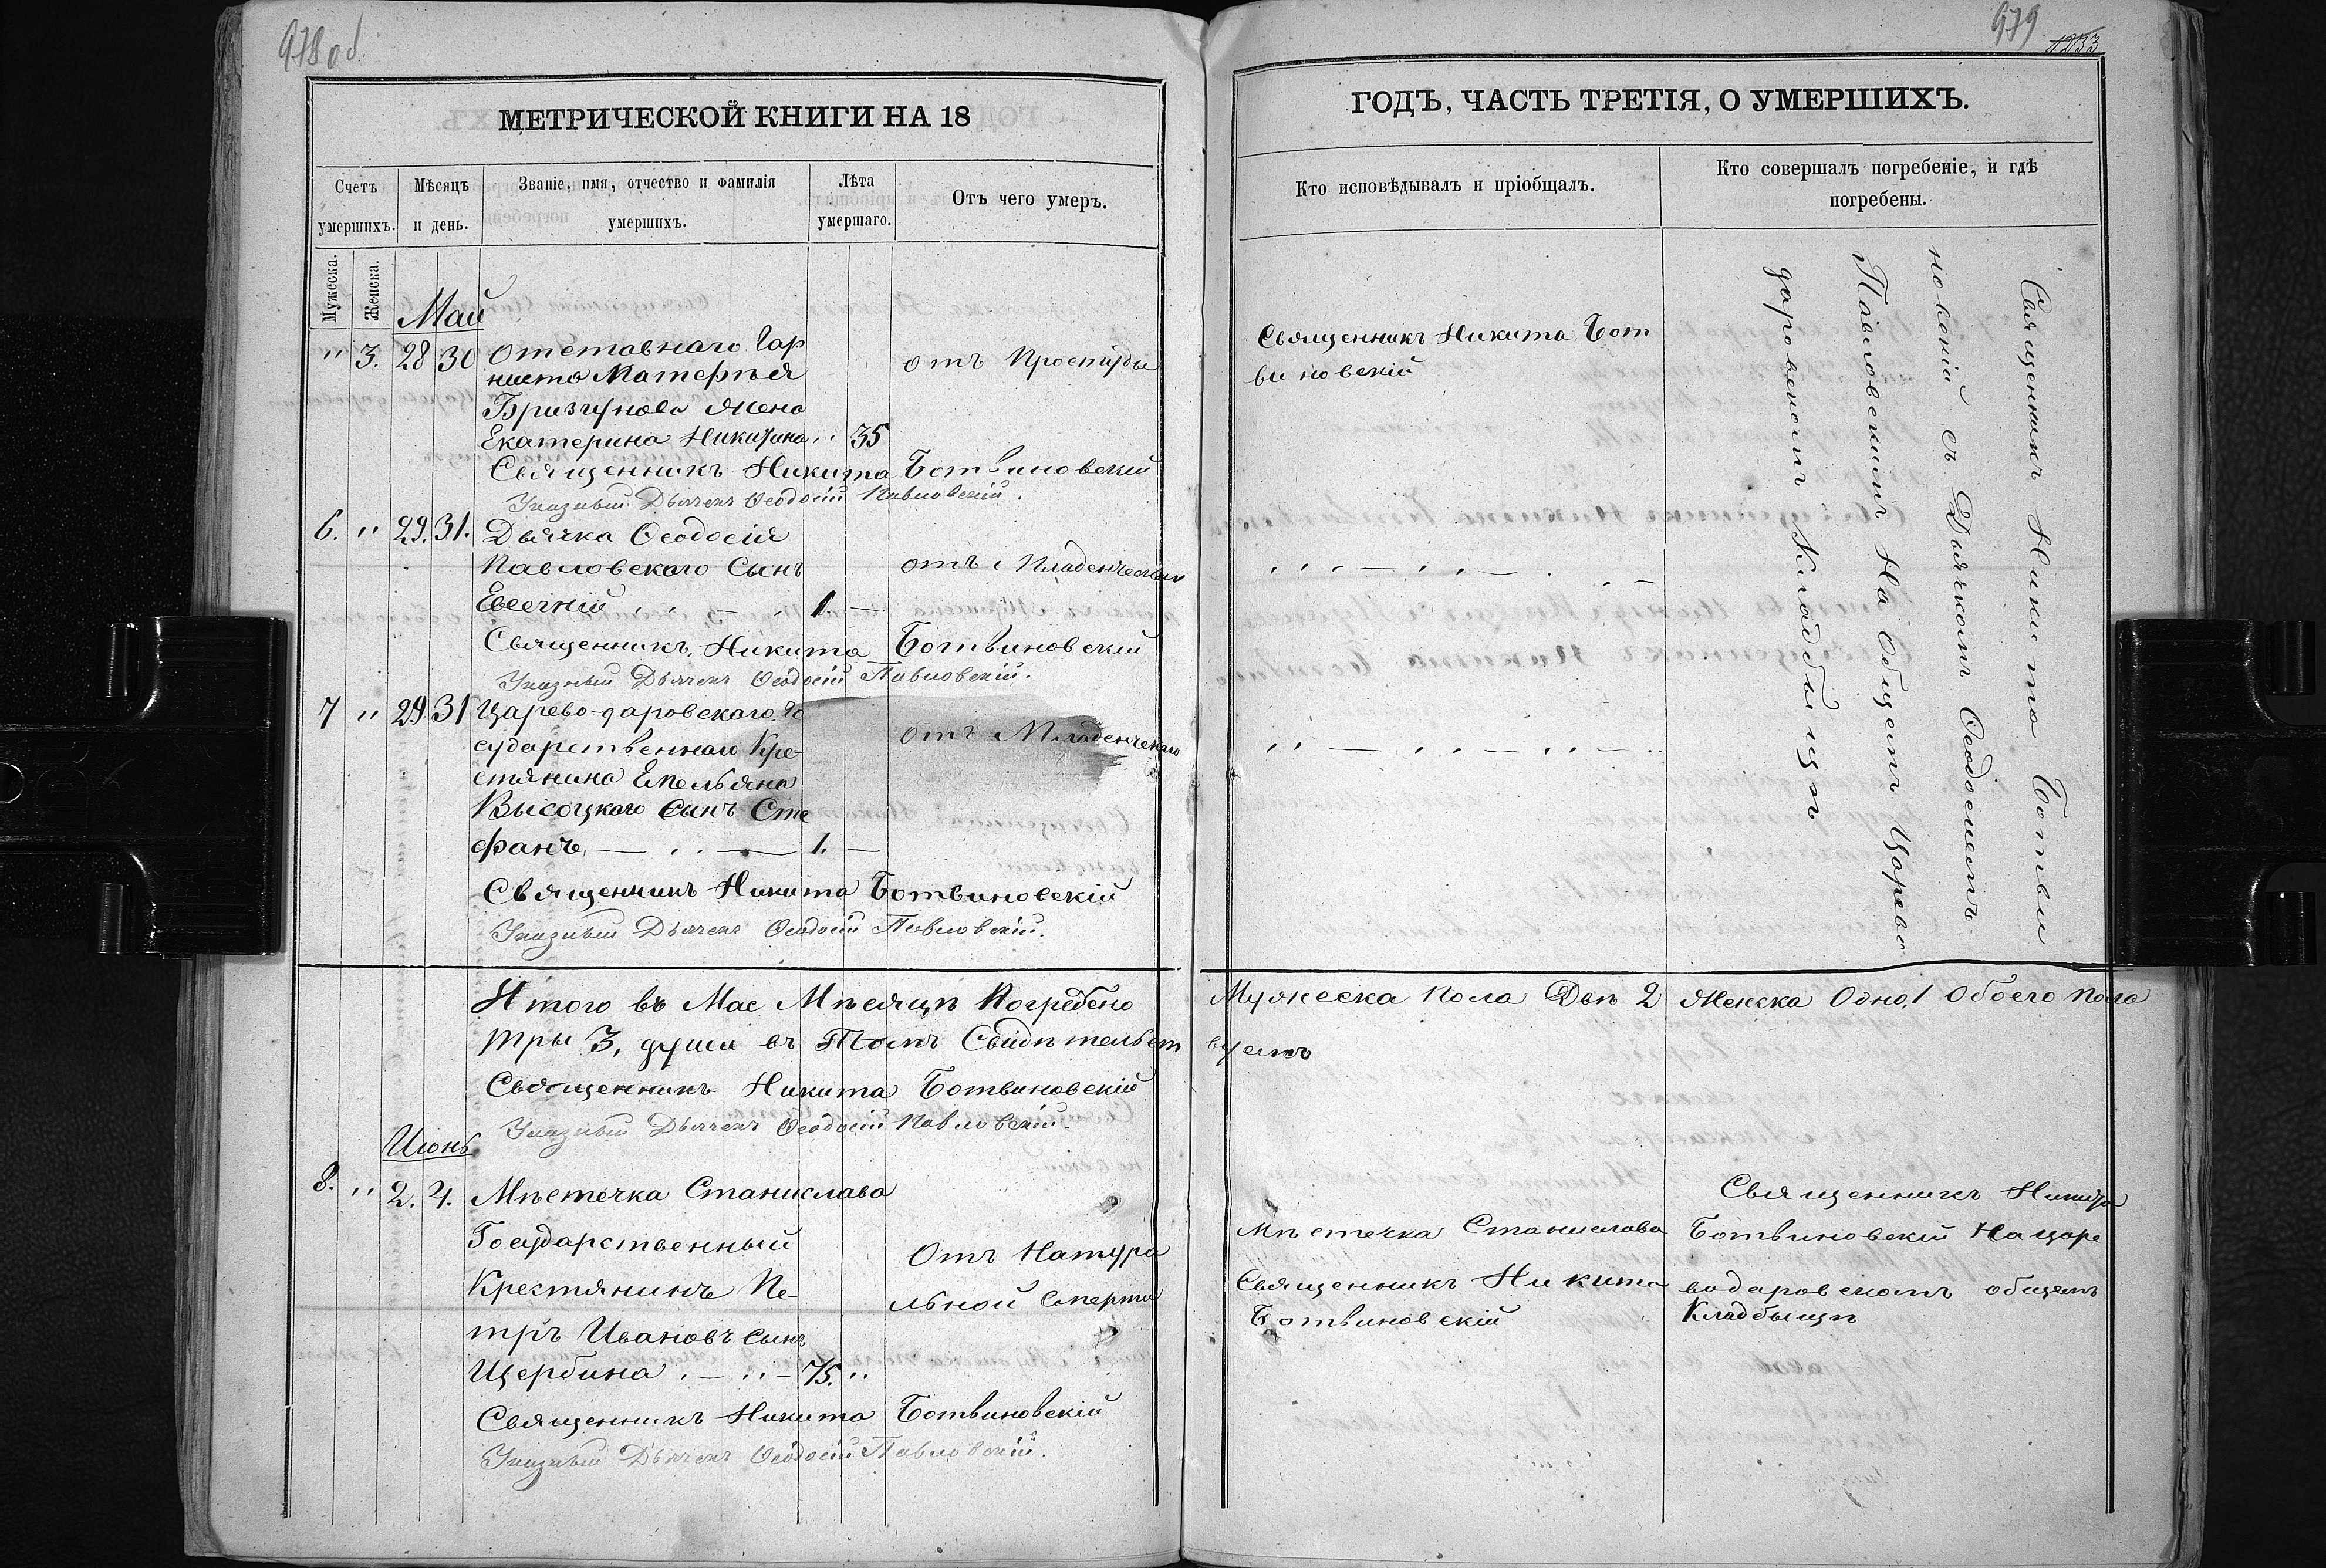 978 об.
МЕТРИЧЕСКОЙ КНИГИ НА 18
Счетъ умершихъ.
Мѣсяцъ и день.
Званіе, имя, отчество и фамилія умершихъ.
Лѣта умершаго.
Отъ чего умеръ.
Мужеска.
Женска.
Май
" 3. 28 30 Отставнаго Гар
ниста Матерѣя
Бризгунова жена
Екатерина Никитина " 35
отъ Простуды
Священникъ Никита Ботвиновскій
Указный Дьячекъ Ѳеодосій Павловскій.
6. " 29. 31. Дьячка Ѳеодосія
Павловскаго Сынъ
Евсечній 1. —
отъ Младенческаго
Священникъ Никита Ботвиновскій
Указный Дьячекъ Ѳеодосій Павловскій.
7 " 29. 31 Царево-даровскаго Го
сударственнаго Кре-
стянина Емельяна
Высоцкаго Сынъ Сте
фанъ — " — 1. —
отъ Младенческаго
Священникъ Никита Ботвиновскій
Указный Дьячекъ Ѳеодосій Павловскій.
Итого въ Мае Мѣсяцѣ Погребено
тры 3, души въ Томъ Свидѣтельст
Священникъ Никита Ботвиновскій
Указный Дьячекъ Ѳеодосій Павловскій.
Июнь
8. " 2. 4. Мѣстечка Станислава
Государственный
Крестянинъ Пе-
тръ Ивановъ Сынъ
Щербина 75. "
Отъ Натура
льной Смерти
Священникъ Никита Ботвиновскій
Указный Дьячекъ Ѳеодосій Павловскій.
979
1233
ГОДЪ, ЧАСТЬ ТРЕТІЯ, О УМЕРШИХЪ.
Кто исповѣдывалъ и пріобщалъ.
Кто совершалъ погребеніе, и гдѣ
погребены.
Священникъ Никита Бот
виновскій
Священникъ Никита Ботви
новскій съ Дьячкомъ Ѳеодосіемъ
Павловскимъ На Общемъ Царево
даровскомъ Кладбыщѣ
Мужеска пола Двѣ 2 Женска Одно, 1 Обоего пола
вуемъ
Мѣстечка Станислава
Священникъ Никита
Ботвиновскій
Священникъ Никита
Ботвиновскій На царе
водаровскомъ общемъ
Кладбыщѣ